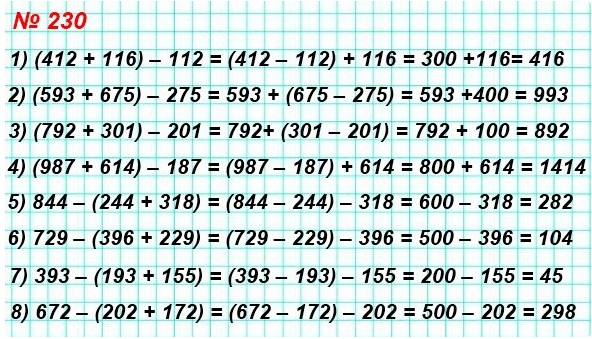 № 230
1) (412 + 116) – 112 = (412 – 112) + 116 = 300 +116= 416
2) (593 + 675) – 275 = 593 + (675 – 275) = 593 +400 = 993
3) (792 + 301) – 201 = 792+ (301 – 201) = 792 + 100 = 892
4) (987 + 614) – 187 = (987 – 187) + 614 = 800 + 614 = 1414
5) 844 – (244 + 318) = (844 – 244) – 318 = 600 – 318 = 282
6) 729 – (396 + 229) = (729 – 229) – 396 = 500 – 396 = 104
7) 393 – (193 + 155) = (393 – 193) – 155 = 200 – 155 = 45
8) 672 – (202 + 172) = (672 – 172) – 202 = 500 – 202 = 298